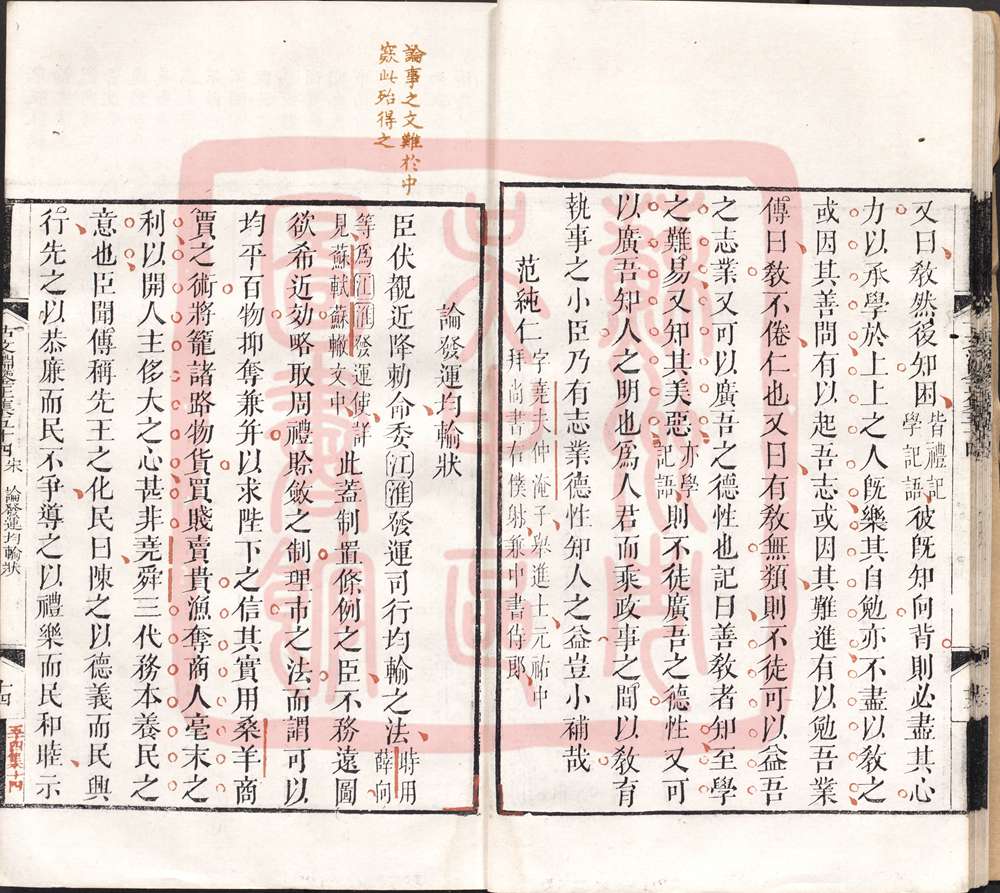 又曰敎然後知困皆禮記學記語彼旣知向背則必盡其心
力以承學於上上之人旣樂其自勉亦不盡以敎之
或因其善問有以起吾志或因其難進有以勉吾業
傳曰敎不倦仁也又曰有敎無類則不徒可以益吾
之志業又可以廣吾之德性也記曰善敎者知至學
之難易又知其美惡亦學記語則不徒廣吾之德性又可
以廣吾知人之明也爲人君而乘政事之閒以敎育
執事之小臣乃有志業德性知人之益豈小補哉
范純仁字堯夫仲淹子舉進士元祐中拜尚書右僕射兼中書侍郎
論事之文難於中
窾此殆得之
論發運均輸狀
臣伏覩近降勅命委江淮發運司行均輸之法時用薛向
等爲江淮發運使詳見蘇軾蘇轍文中此蓋制置條例之臣不務遠圖
欲希近効略取周禮賒斂之制理市之法而謂可以
均平百物抑奪兼并以求陛下之信其實用桑羊商
賈之術將籠諸路物貨買賤賣貴漁奪商人毫末之
利以開人主侈大之心甚非堯舜三代務本養民之
意也臣聞傳稱先王之化民曰陳之以德義而民興
行先之以恭廉而民不爭導之以禮樂而民和睦示
宋 論發運均輸狀
十四